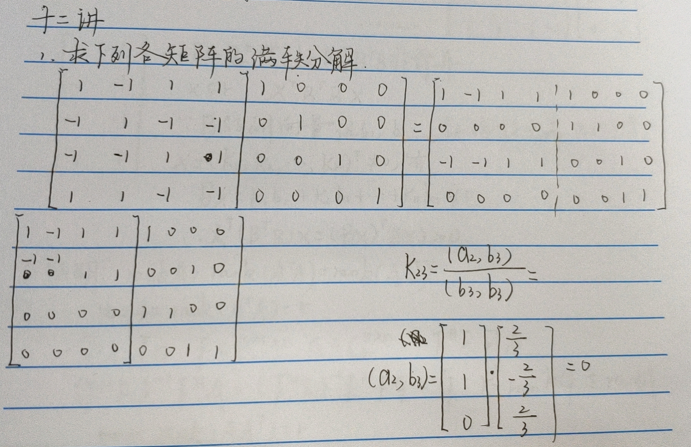 十二讲
1、求下列各矩阵的满秩分解.
[1 -1 1 1 | 1 0 0 0] = [1 -1 1 1 | 1 0 0 0]
[-1 1 -1 -1 | 0 1 0 0] [0 0 0 0 | 1 1 0 0]
[-1 -1 1 1 | 0 0 1 0] [-1 -1 1 1 | 0 0 1 0]
[1 1 -1 -1 | 0 0 0 1] [0 0 0 0 | 0 0 1 1]
[1 -1 1 1 | 1 0 0 0]
[-1 -1 1 1 | 0 0 1 0]
[0 0 0 0 | 1 1 0 0]
[0 0 0 0 | 0 0 1 1]
K₂₃ = (a₂, b₃) / (b₃, b₃) =
(a₂, b₃) = [1 1 0] · [2/3 -2/3 2/3] = 0